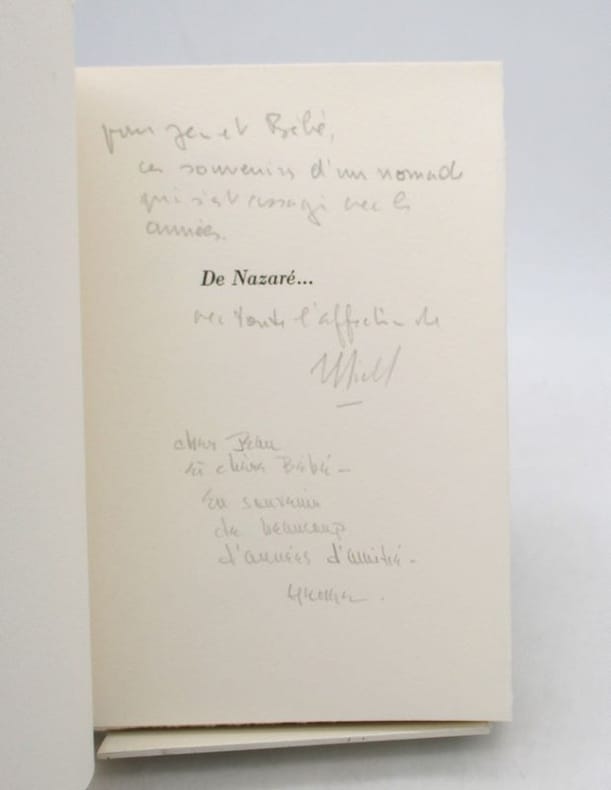 pour Jean et Bébé,
ces souvenirs d'un nomade
qui s'est assagi avec les
années.
De Nazaré...
avec toute l'affection de
cher Jean
et chère Bébé –
en souvenir
de beaucoup
d'années d'amitié –